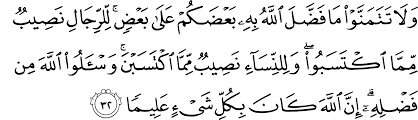 وَلَا تَتَمَنَّوْا۟ مَا فَضَّلَ ٱللَّهُ بِهِۦ بَعْضَكُمْ عَلَىٰ بَعْضٍ ۚ لِّلرِّجَالِ نَصِيبٌ
مِّمَّا ٱكْتَسَبُوا۟ ۖ وَلِلنِّسَآءِ نَصِيبٌ مِّمَّا ٱكْتَسَبْنَ ۚ وَسْـَٔلُوا۟ ٱللَّهَ مِن
فَضْلِهِۦٓ ۗ إِنَّ ٱللَّهَ كَانَ بِكُلِّ شَىْءٍ عَلِيمًا ٣٢